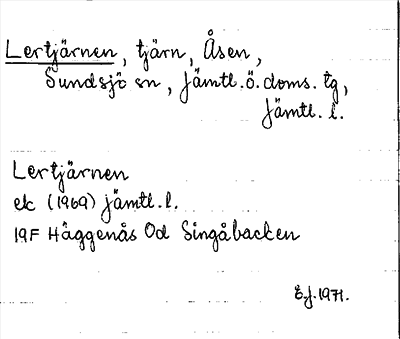 Lertjärnen, tjärn, Åsen,
Sundsjö sn, Jämtl.ö.doms. tg,
Jämtl. l.
Lertjärnen
ek (1969) Jämtl.l.
19F Häggenås Od Singåbacken
E.J. 1971.